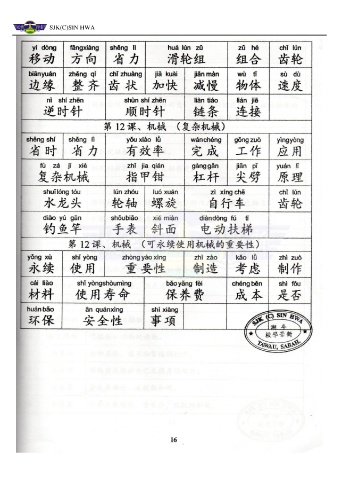 SJK(C)SIN HWA
yí dòng fāngxiàng shěng lì huá lún zǔ zǔ hé chǐ lún
移动 方向 省力 滑轮组 组合 齿轮
biānyuán zhěng qí chǐ zhuàng jiā kuài jiǎn màn wù tǐ sù dù
边缘 整齐 齿状 加快 减慢 物体 速度
nì shí zhēn shùn shí zhēn liàn tiáo lián jiē
逆时针 顺时针 链条 连接
第12课、机械 (复杂机械)
shěng shí shěng lì yǒu xiào lǜ wánchéng gōng zuò yìngyòng
省时 省力 有效率 完成 工作 应用
fù zá jī xiè zhǐ jia qián gàng gǎn jiān pī yuán lǐ
复杂机械 指甲钳 杠杆 尖劈 原理
shuǐ lóng tóu lún zhóu luó xuán zì xíng chē chǐ lún
水龙头 轮轴 螺旋 自行车 齿轮
diào yú gān shǒubiǎo xié miàn diàndòng fú tī
钓鱼竿 手表 斜面 电动扶梯
第12课、机械 (可永续使用机械的重要性)
yǒng xù shǐ yòng zhòng yào xìng zhì zào kǎo lǜ zhì zuò
永续 使用 重要性 制造 考虑 制作
cái liào shǐ yòngshòumìng bǎo yǎng fèi chéng běn shì fǒu
材料 使用寿命 保养费 成本 是否
huán bǎo ān quánxìng shì xiàng
环保 安全性 事项
SJK (C) SIN HWA
TAWAU, SABAH.
16